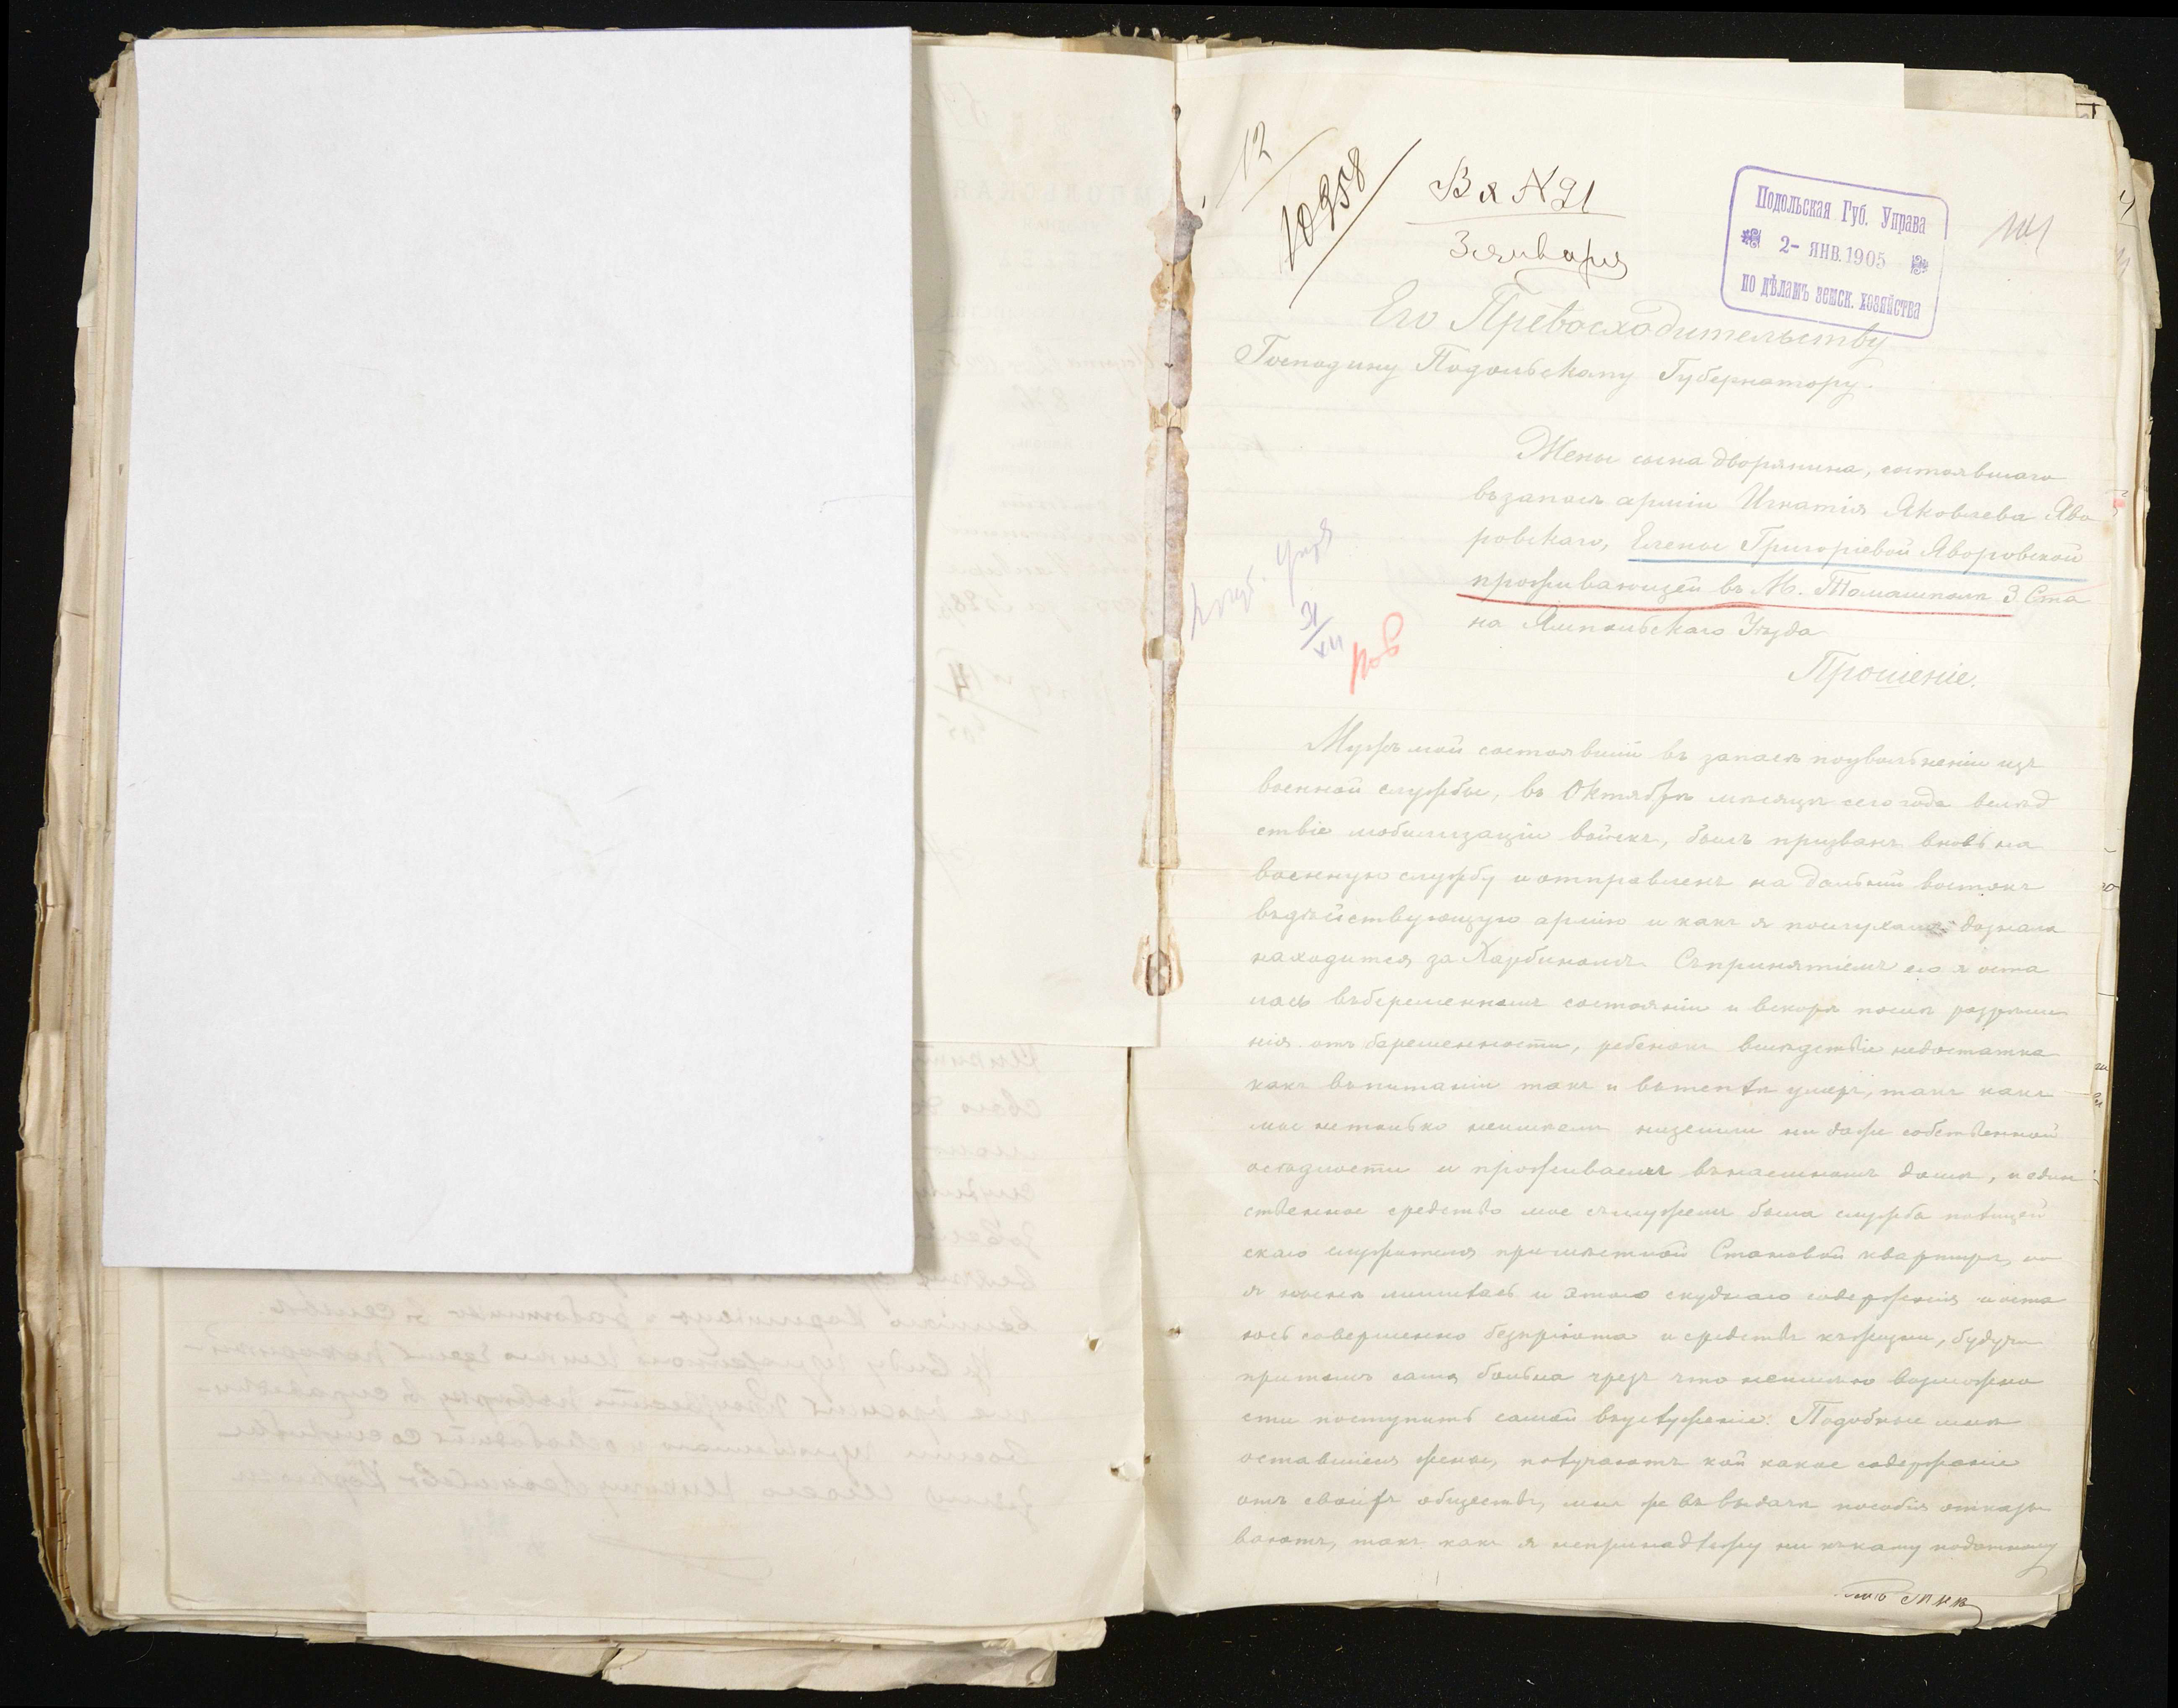 12
10958
Вх №91
3 января
Подольская Губ. Управа
2- ЯНВ. 1905
по дѣламъ земск. хозяйства
141
Его Превосходительству
Господину Подольскому Губернатору.
Жены сына дворянина, состоявшаго
въ запасѣ арміи Игнатія Яковлева Яво
ровскаго, Елены Григоріевой Яворовской
проживающей въ М. Томашполѣ 3 Ста
на Ямпольскаго Уѣзда
31
XII
Прошеніе.
Мужъ мой состоявшій въ запасѣ поувольненіи изъ
военной службы, въ Октябрѣ мѣсяцѣ сего года вслѣд
ствіе мобилизаціи войскъ, былъ призванъ вновь на
военную службу и отправленъ на дальній востокъ
въдѣйствующую армію и какъ я послухамъ дознала
находится за Харбиномъ. Съпринятіемъ его я оста
лась въбеременномъ состояніи и вскорѣ послѣ разрѣше
нія отъ беременности, ребенокъ вслѣдствіе недостатка
какъ въпитаніи такъ и вътеплѣ умеръ, такъ какъ
мы нетолько неимѣемъ низемли ни даже собственной
осѣдлости и проживаемъ вънаемномъ домѣ, и един
ственное средство мое съмужемъ была служба полицей
скаго служителя при мѣстной Становой квартирѣ, но
я нынѣ лишилась и этого скуднаго содержанія и оста
юсь совершенно безпріюта и средствъ къжизни, будучи
притомъ сама больна чрезъ что неимѣю возможно
сти поступить самой вуслуженіе. Подобные мнѣ
оставшіеся жены, получаютъ кой какое содержаніе
отъ своихъ обществъ, мнѣ же въ выдачѣ пособія отказы
ваютъ, такъ какъ я непринадлежу ни къкакому податному